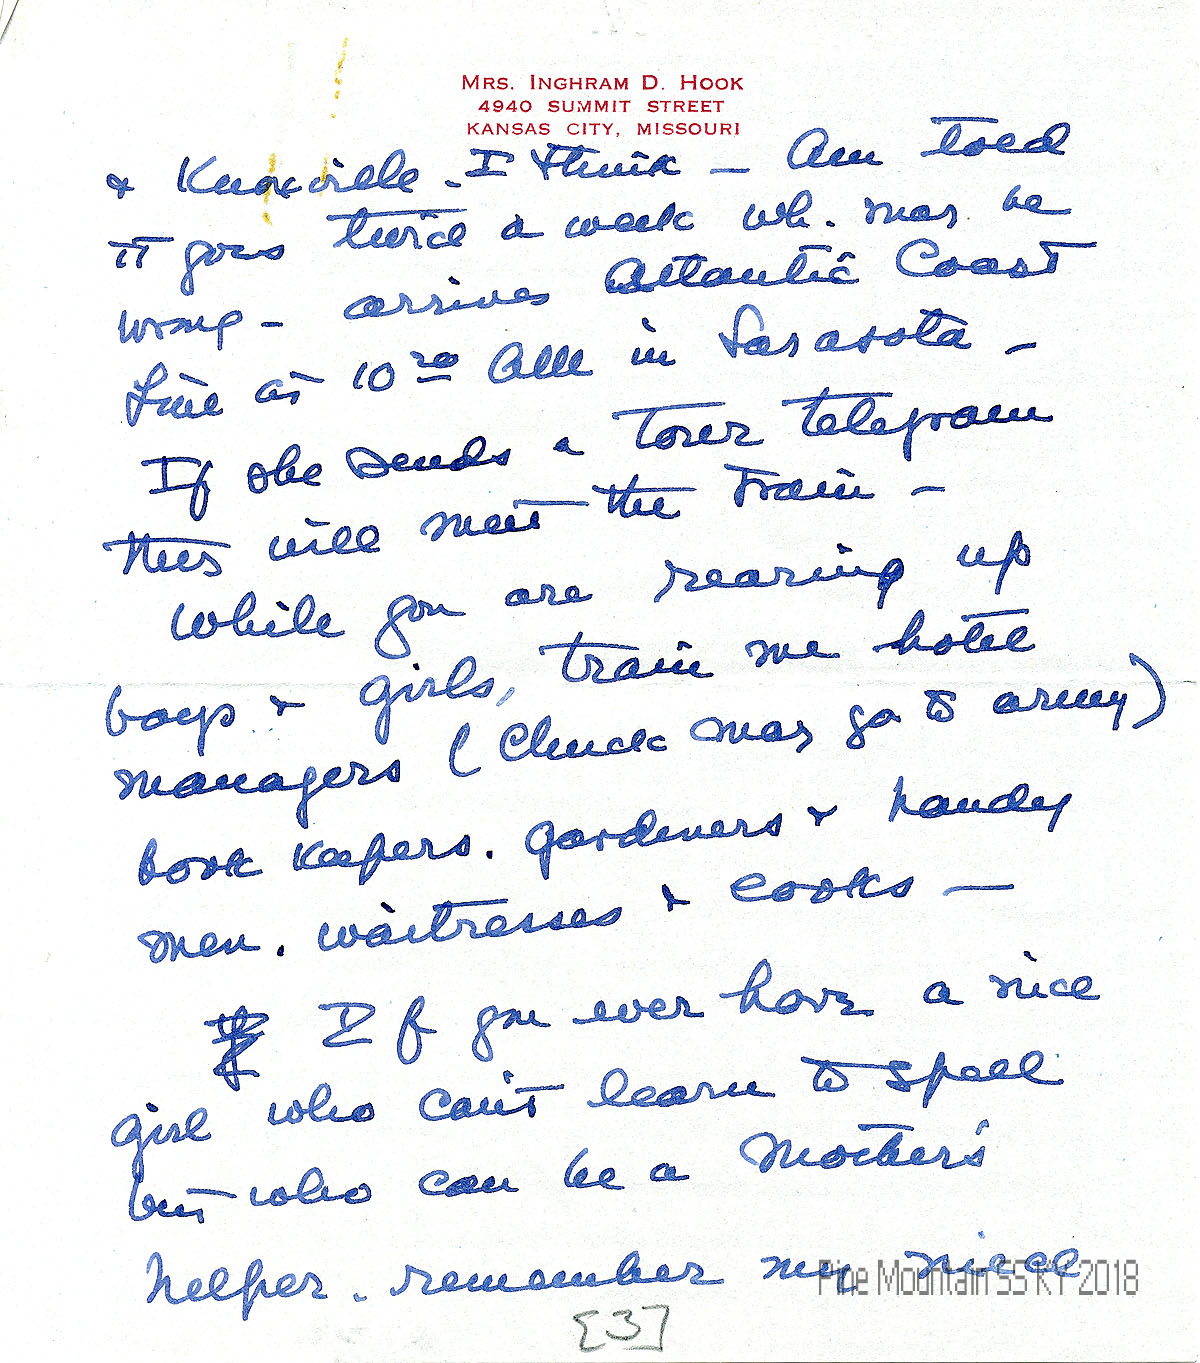 MRS. INGHRAM D. HOOK
4940 SUMMIT STREET
KANSAS CITY, MISSOURI
& Knoxville. I think — Am told
it goes twice a week wh. may be
wrong — arrives Atlantic Coast
Line at 10 20 AM in Sarasota —
If she sends a Torer telegram
they will meet the train —
While you are rearing up
boys & girls, train me hotel
managers (Chuck may go to army)
book keepers. gardeners & handy
men. waitresses & cooks —
If you ever have a nice
girl who can't learn to spell
but who can be a Mother's
helper. remember my niece
[3]
Pine Mountain SS KY 2018